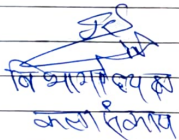 विभागाध्यक्ष
कला संकाय